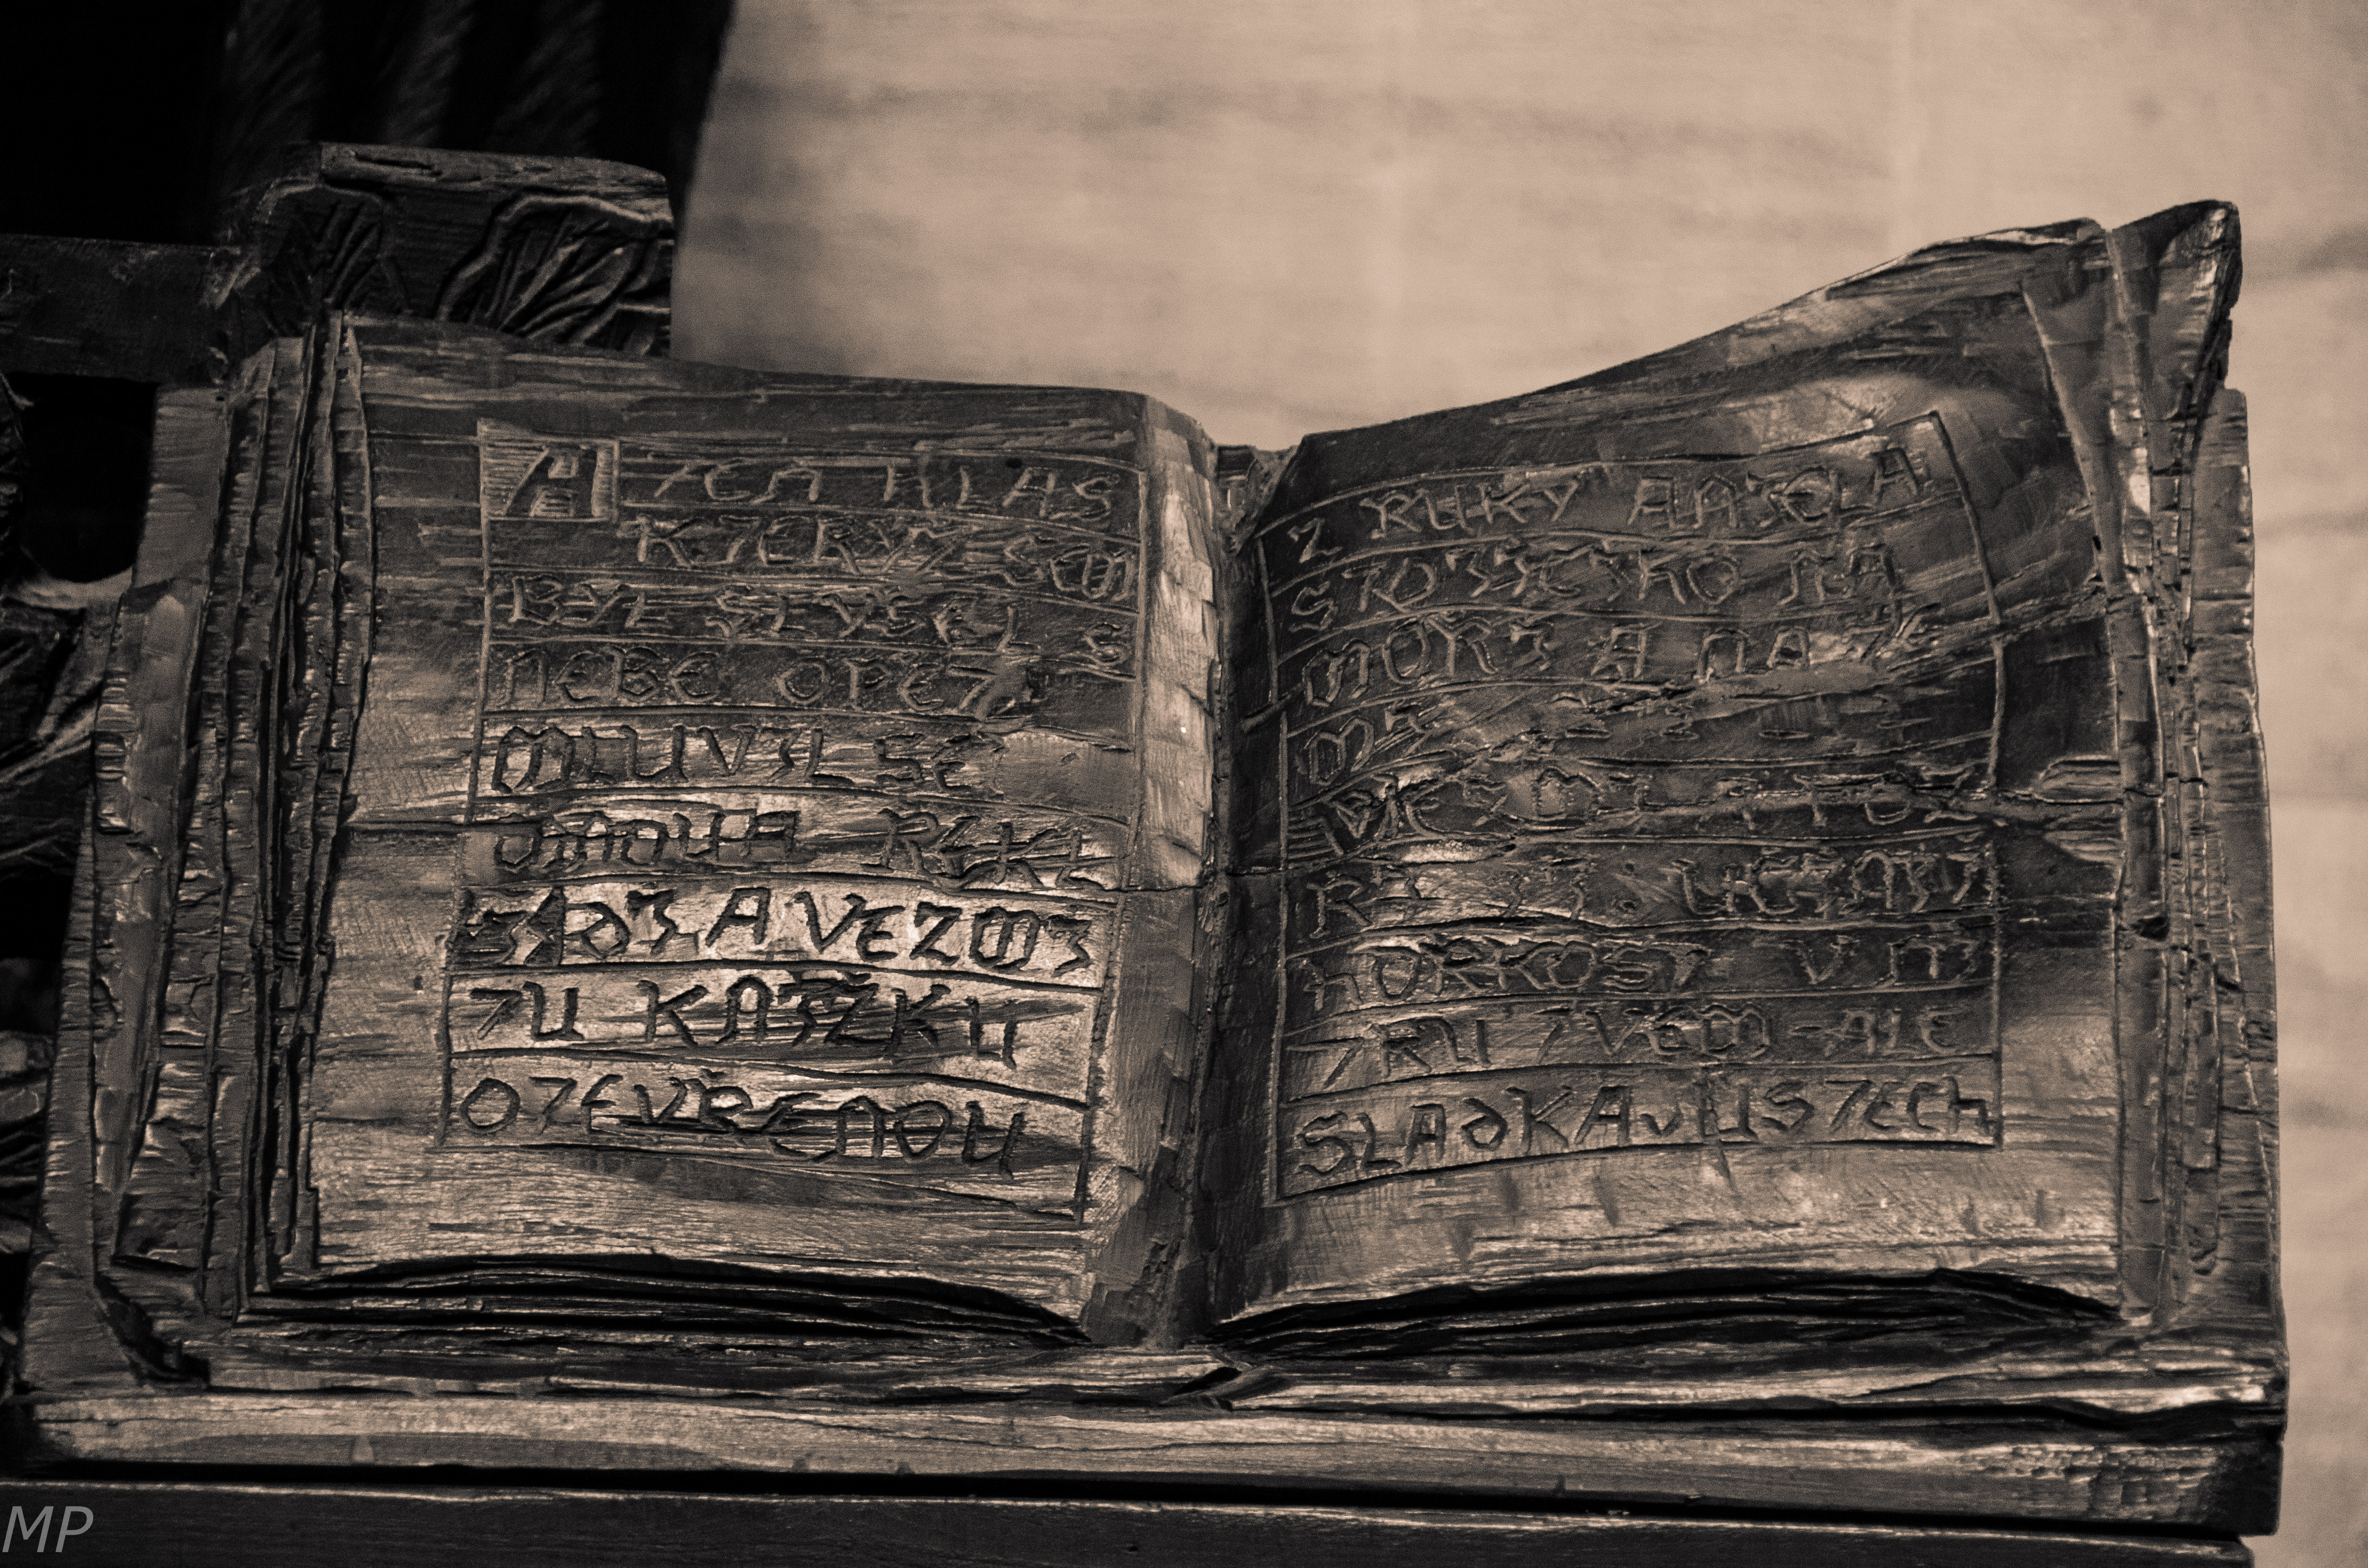 A TEN HLAS
KTERYŽ SEM
BYL SLYŠEL S
NEBE OPET
MLUVIL SE
MNOU A ŘEKL
JDI A VEZMI
TU KNIŽKU
OTEVŘENOU
Z RUKY ANJELA
STOJICIHO NA
MOŘI A NA ZE
MI
HORKOST V NI
TRU TVEM ALE
SLADKA V USTECH
MP